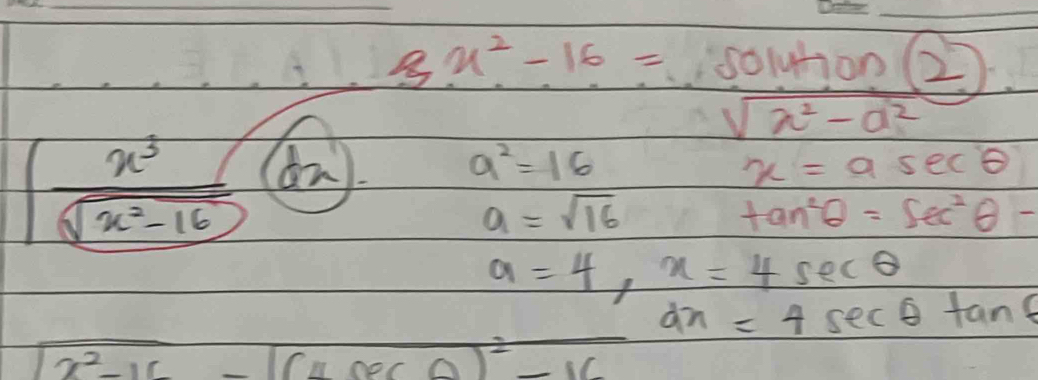 x² - 16 = solution ②
√(x² - a²)
∫ x³ / √(x² - 16) dx. a² = 16 x = a sec θ
a = √16 tan²θ = sec²θ -
a = 4, x = 4 sec θ
dx = 4 sec θ tan θ
√(x² - 16 = √((4 sec θ)² - 16